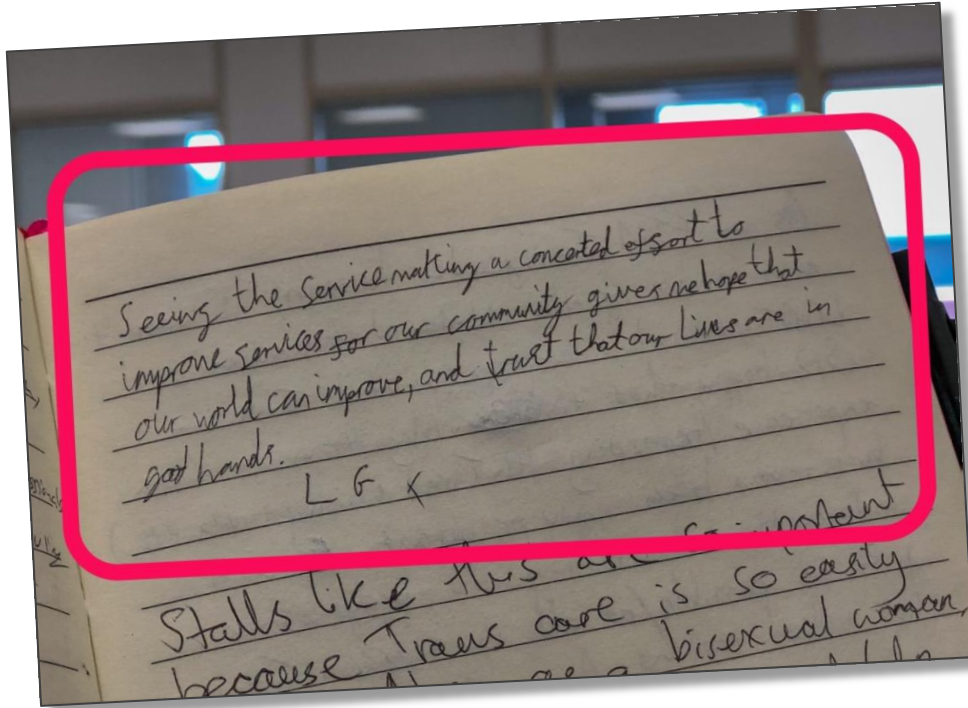 Seeing the Service making a concerted effort to
improve services for our community gives me hope that
our world can improve, and trust that our Lives are in
good hands.
L G x
Stalls like this are so important
because Trans care is so easily
as a bisexual woman,